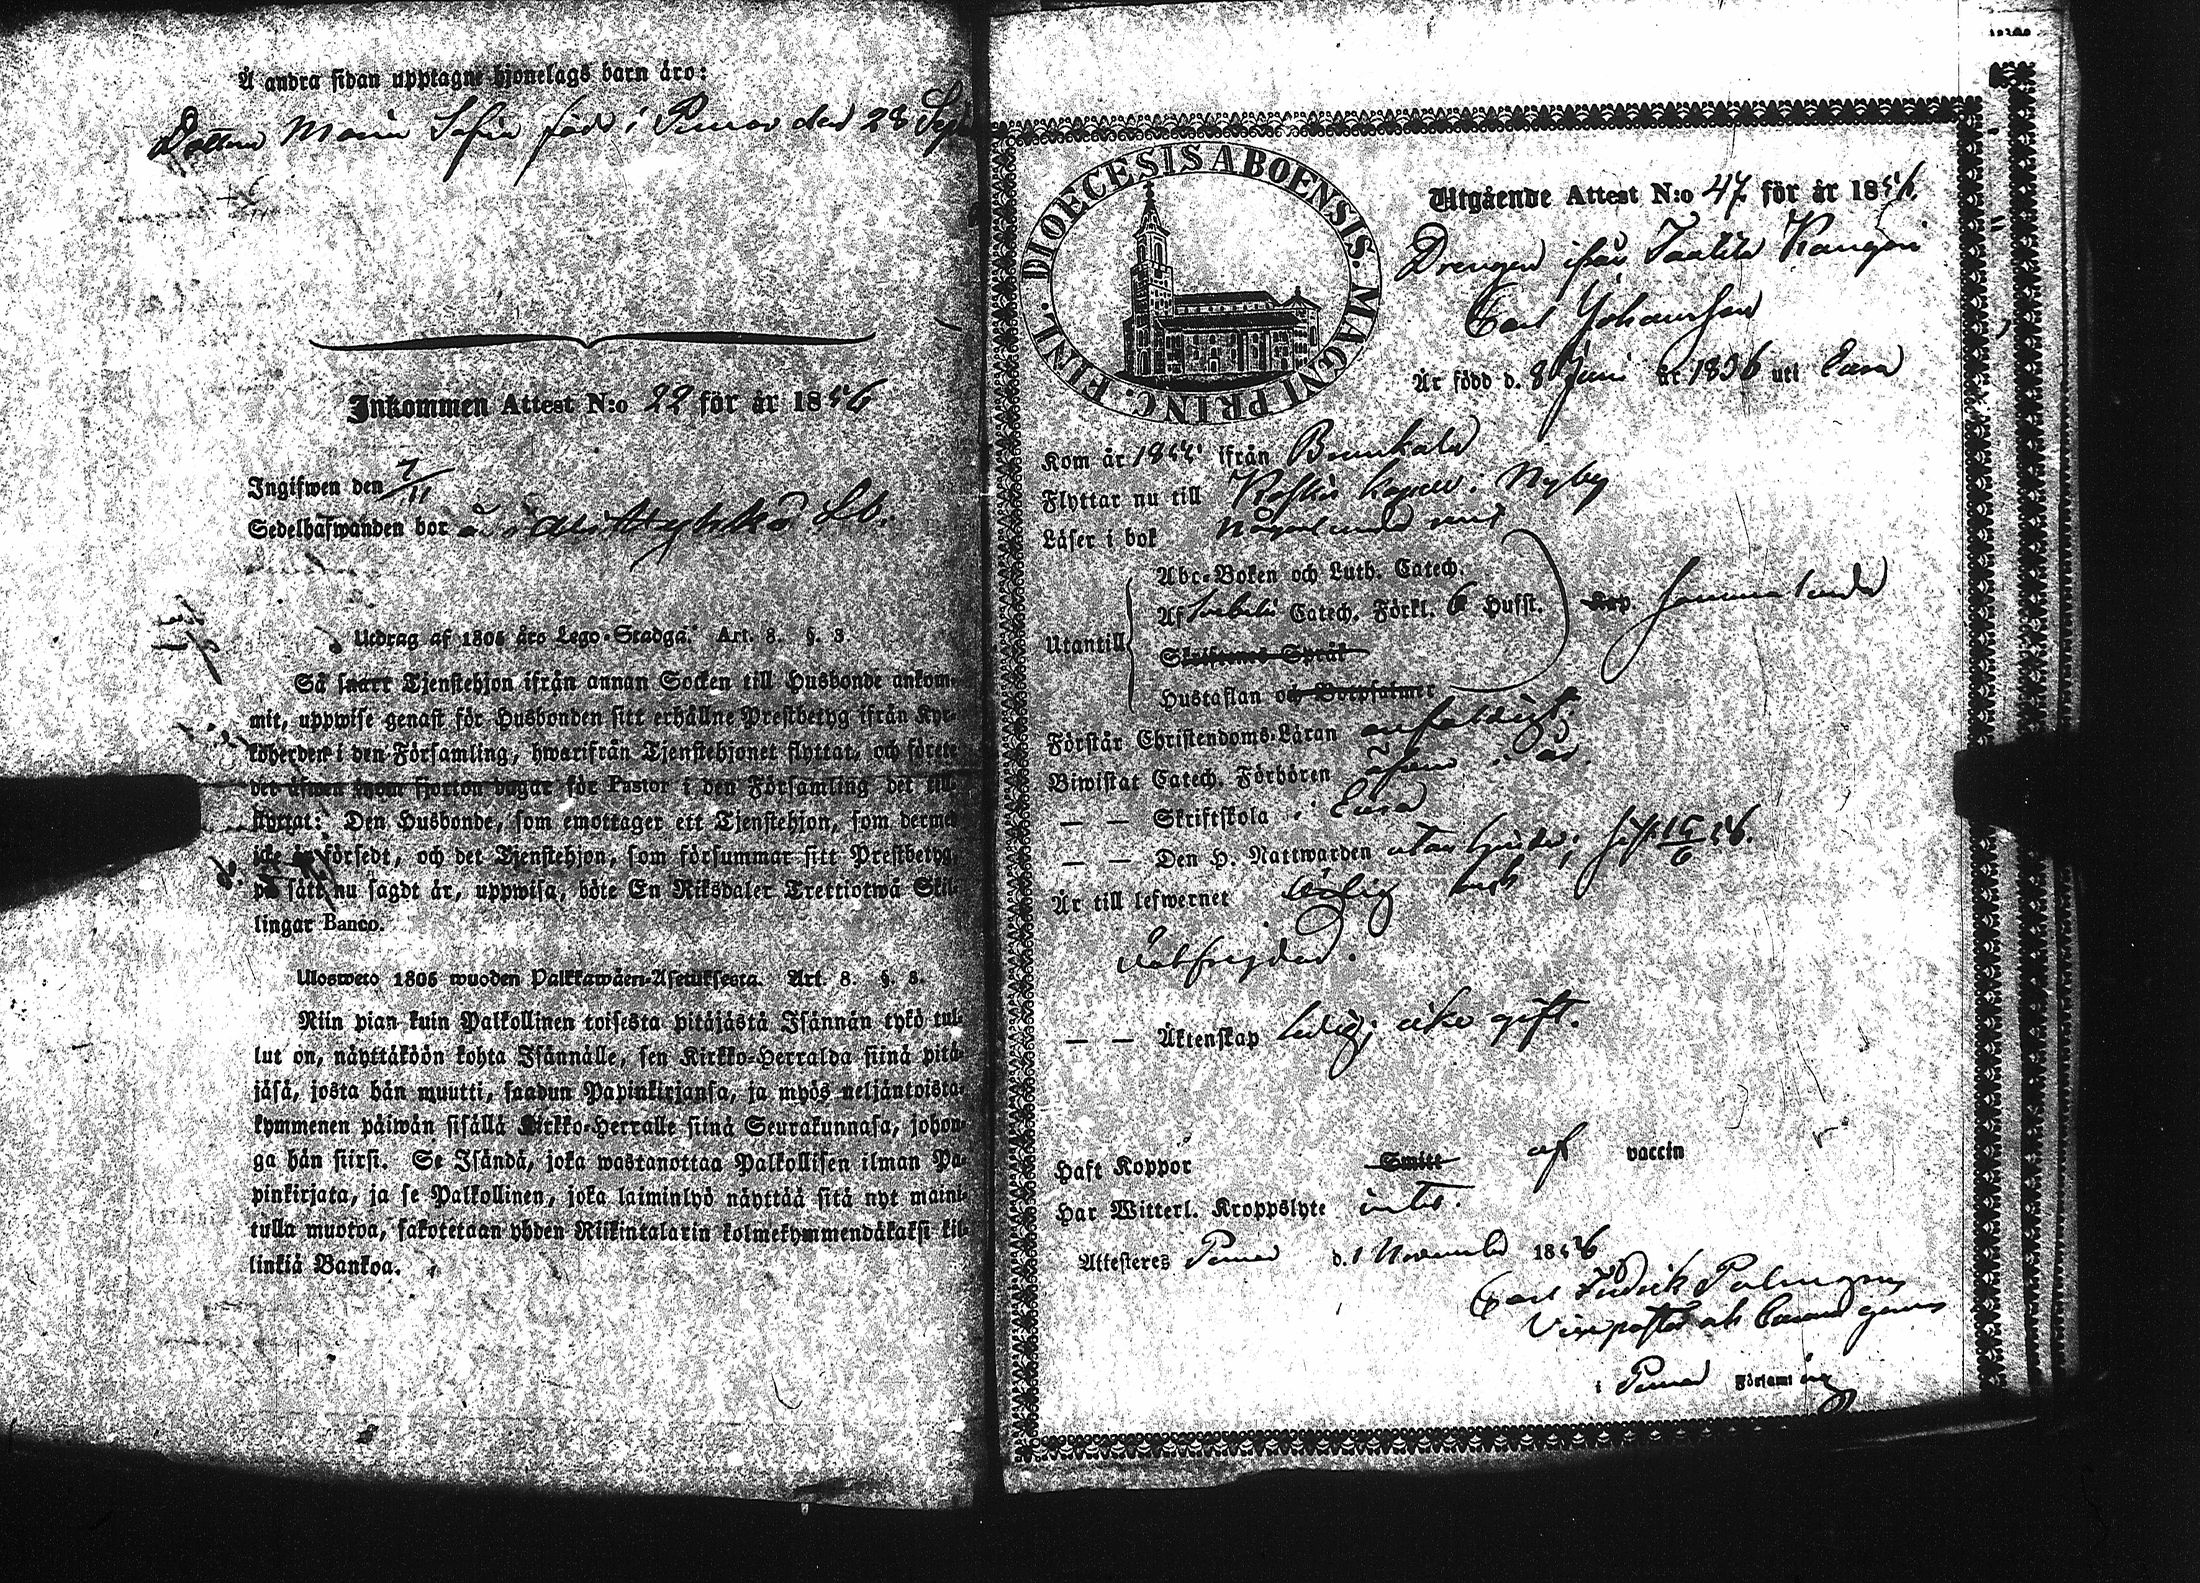 Å andra sidan upptagne hjonelags barn äro:
Dottern Maria Sofia född i Pemar den 28 Sept
Inkommen Attest N:o 22 för år 1856
Ingifwen den 7/11
Sedelhafwanden bor å
Utdrag af 1805 års Lego-Stadga. Art. 8. §. 3.
Så snart Tjenstehjon ifrån annan Socken till Husbonde ankom-
mit, uppwise genast för Husbonden sitt erhållne Prestbetyg ifrån Kyr-
koherden i den Församling, hwarifrån Tjenstehjonet flyttat, och förete
det äfwen inom fjorton dagar för Pastor i den Församling det till-
flyttat: Den Husbonde, som emottager ett Tjenstehjon, som dermed
icke är försedt, och det Tjenstehjon, som försummar sitt Prestbetyg,
på sätt nu sagdt är, uppwisa, böte En Riksdaler Trettiotwå Skil-
lingar Banco.
Ulosweto 1805 wuoden Palkkawäen-Asetuksesta. Art. 8. §. 3.
Niin pian kuin Palkollinen toisesta pitäjästä Isännän tykö tul-
lut on, näyttäköön kohta Isännälle, sen Kirkko-Herralda siinä pitä-
jäsä, josta hän muutti, saadun Papinkirjansa, ja myös neljäntoista-
kymmenen päiwän sisällä Kirkko-Herralle siinä Seurakunnasa, johon-
ga hän siirsi. Se Isändä, joka wastanottaa Palkollisen ilman Pa-
pinkirjata, ja se Palkollinen, joka laiminlyö näyttää sitä nyt maini-
tulla muotoa, sakotetaan yhden Riikintalarin kolmekymmendäkaksi kil-
linkiä Bankoa.
DIOECESIS ABOENSIS. MAGNI PRINC. FINL.
Utgående Attest N:o 47 för år 1856.
Drengen ifrån
Carl Johansson
Är född d. 8 Juni år 1836 uti Eura
Kom år 185 ifrån
Flyttar nu till Koskis kapell. Nyby
Läser i bok någorlunda rent
Utantill
Abc-Boken och Luth. Catech.
Af Svebelii Catech. Förkl. 6 Hufst.
Skriftenes Språk
Hustaflan och Botpsalmer
Kap. försvarligt
Förstår Christendoms-Läran enfaldigt.
Biwistat Catech. Förhören äfven i år.
— — Skriftskola i Eura
— — Den H. Nattwarden utan hinder; sist 15/6 56.
Är till lefwernet ärlig och
välfrejdad.
— — Äktenskap ledig; icke gift.
Haft Koppor Smitt af vaccin
Har Witterl. Kroppslyte intet.
Attesteres Pemar d. 1 November 1856
Carl Fredrik Palmgren
Vice pastor
i Pemar Församling